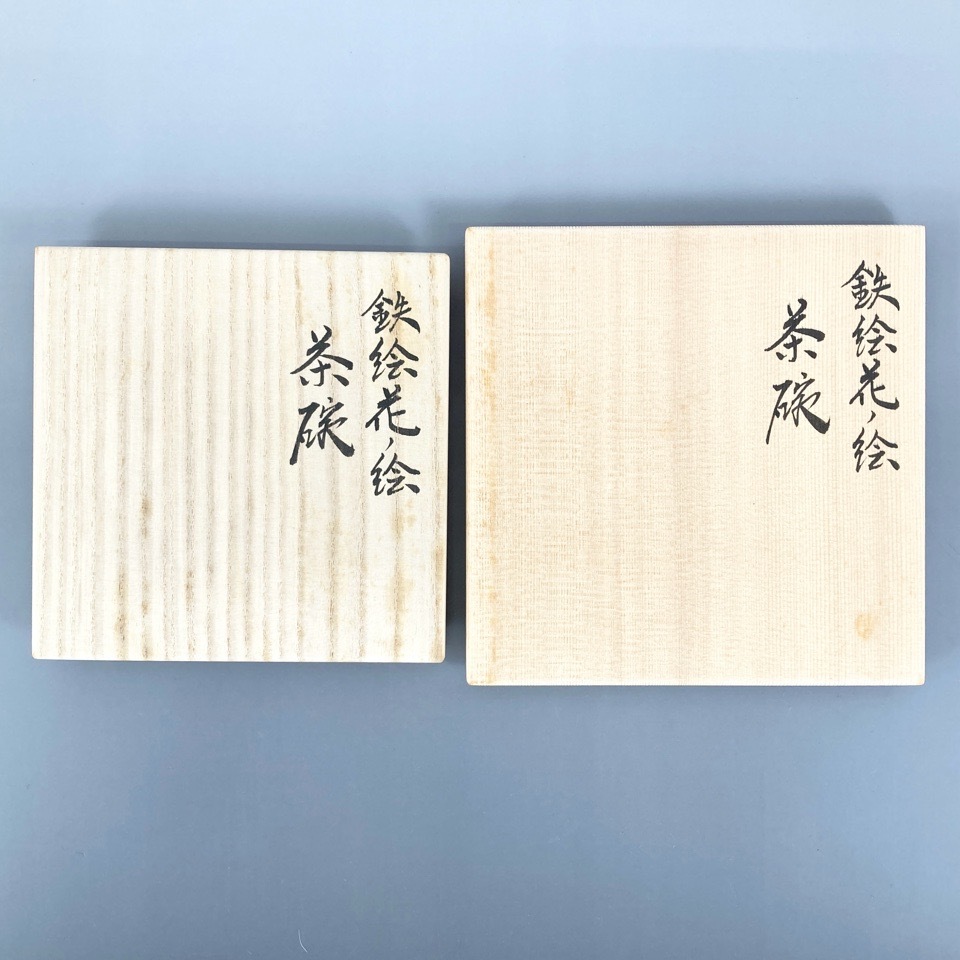 鉄絵花ノ絵
茶碗
鉄絵花ノ絵
茶碗